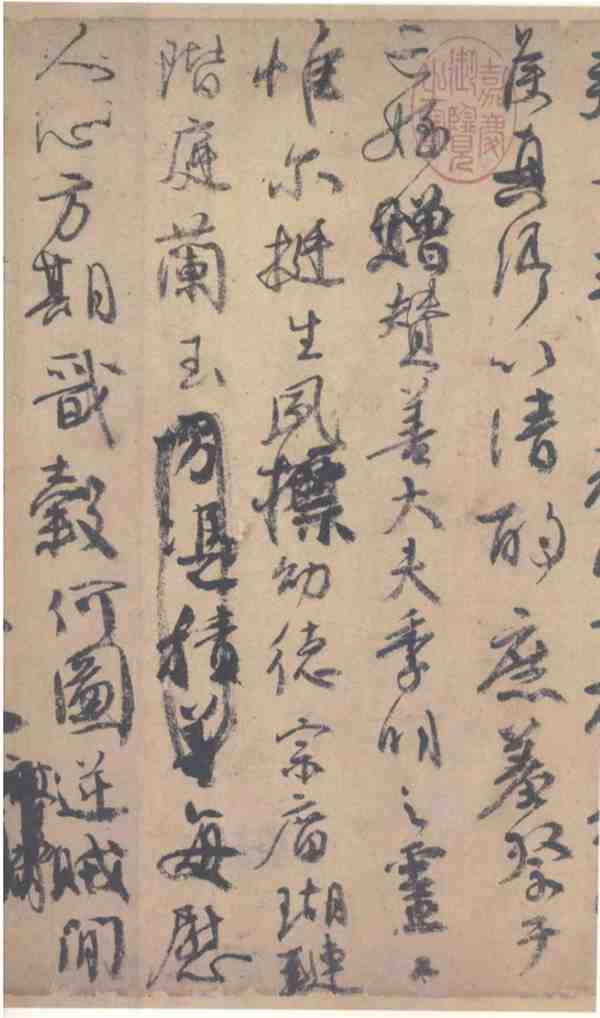 侯真卿以清酌庶羞祭于
亡姪贈贊善大夫季明之靈曰
惟尔挺生夙標幼德宗庿瑚璉
階庭蘭玉方憑積善每慰
人心方期戩穀何圖逆賊間
嘉慶御覽之寶